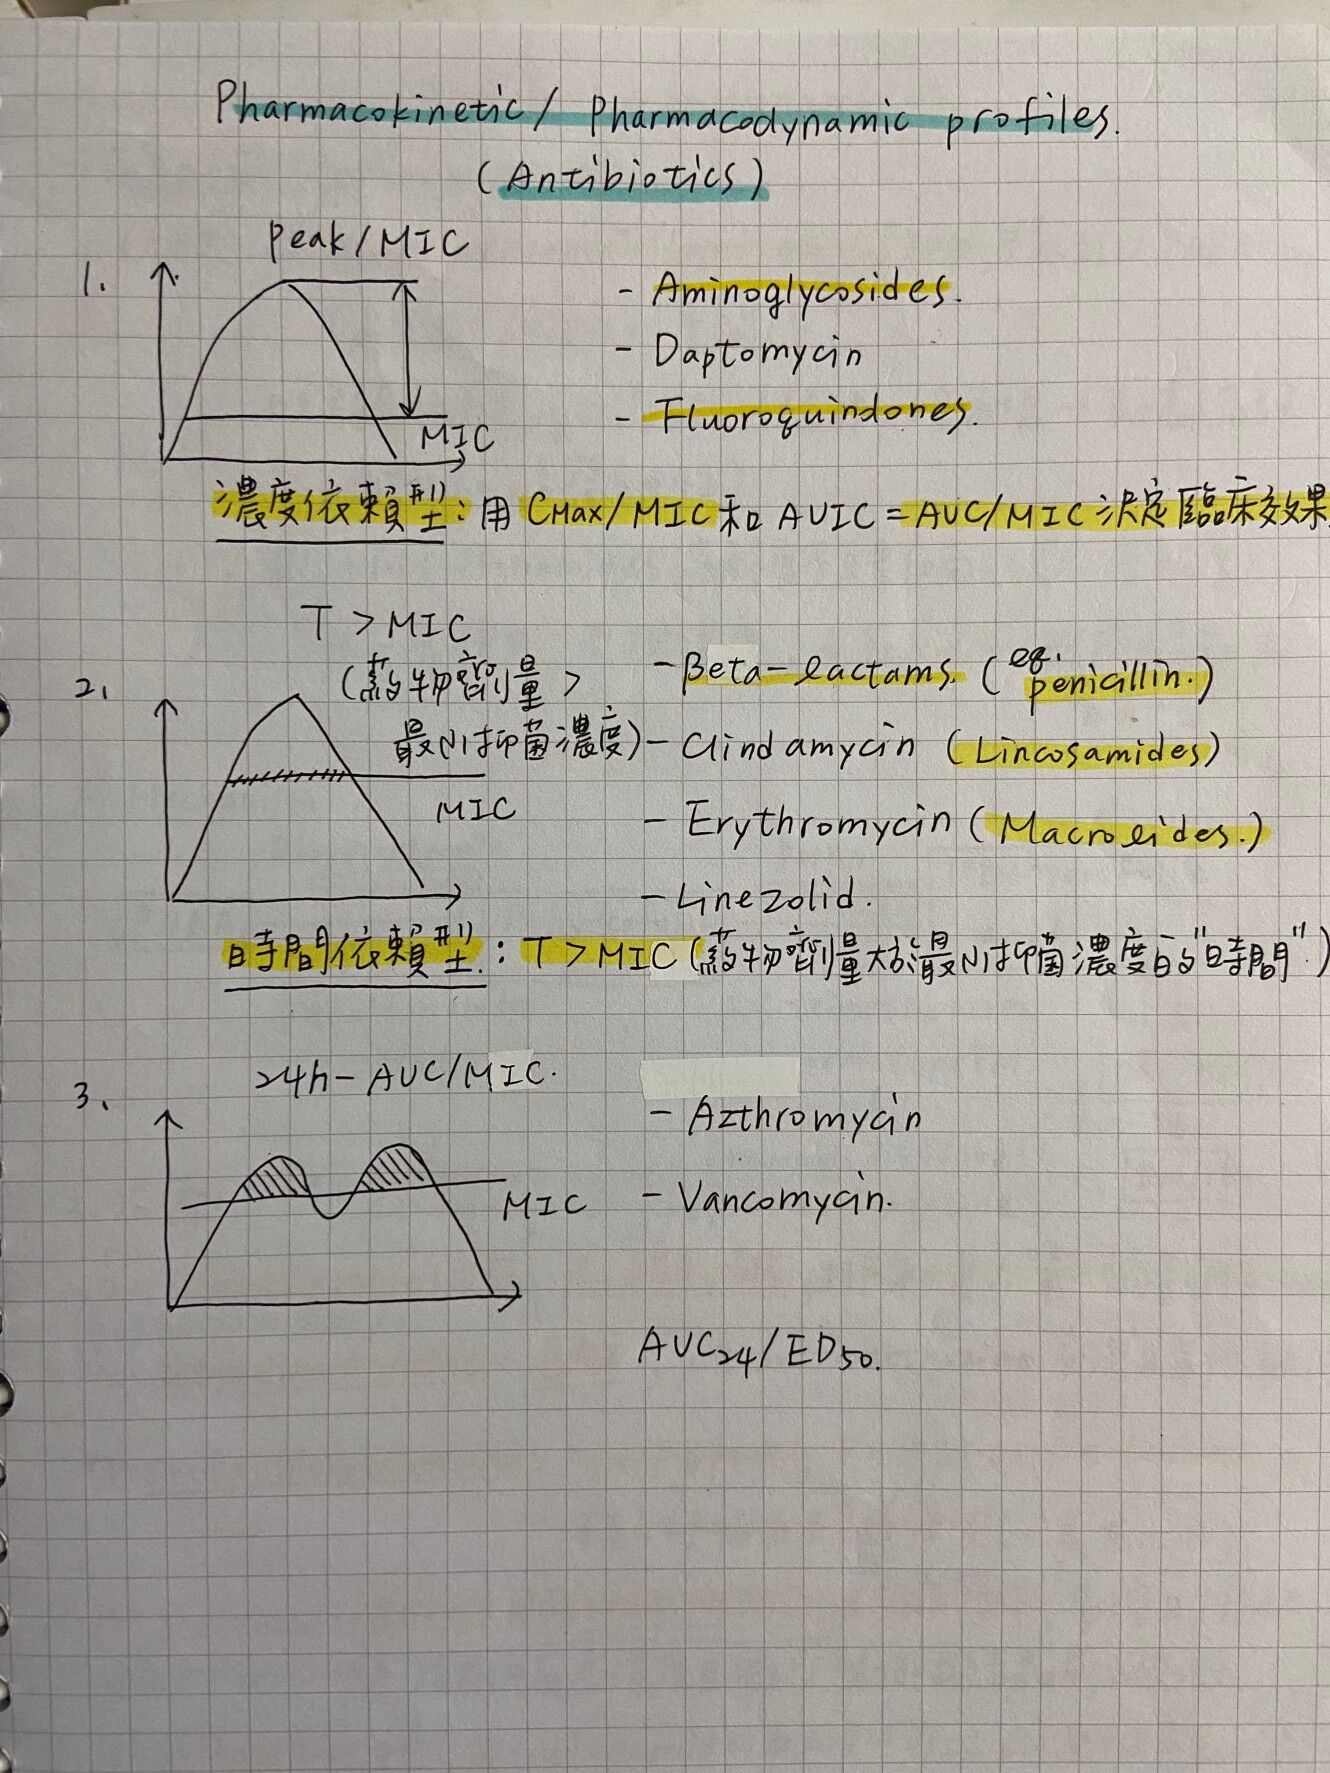 Pharmacokinetic/ Pharmacodynamic profiles.
(Antibiotics)
1.
Peak/MIC
MIC
- Aminoglycosides.
- Daptomycin
- Fluoroquindones.
濃度依賴型: 用 CMax/MIC 和 AUIC = AUC/MIC 決定臨床效果.
2.
T > MIC
(藥物劑量 >
最小抑菌濃度)
MIC
- Beta-lactams. (eg. penicillin.)
- Clindamycin (Lincosamides)
- Erythromycin (Macrolides.)
- Linezolid.
時間依賴型.: T > MIC (藥物劑量大於最小抑菌濃度的"時間".)
3.
24h-AUC/MIC.
MIC
- Azthromycin
- Vancomycin.
AUC24/ED50.